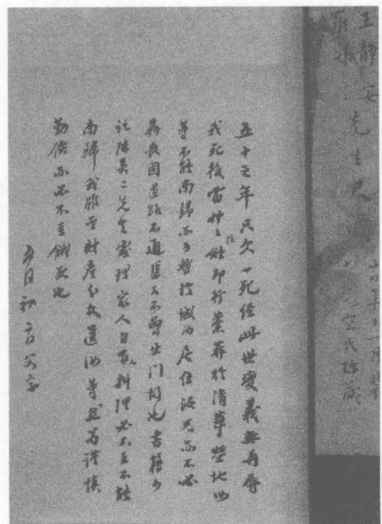 王靜安
先生
五十之年只欠一死經此世變義無再辱
我死後當草草棺斂即行藁葬於清華塋地汝
等不能南歸亦可暫於城內居住汝兄亦不必
奔喪因道路不通渠又不曾出門故也書籍可
託陳吳二先生處理家人自有人料理必不至不能
南歸我雖無財產分文遺汝等然苟謹慎
勤儉亦必不至餓死也
五月初二日父字